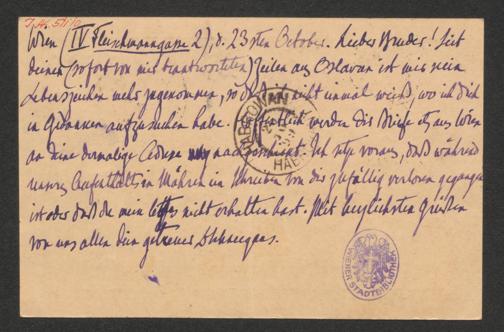 J.N. 511/10
Wien (IV Fleischmanngasse 2), d. 23sten October. Lieber Bruder! Seit
deinen (sofort von mir beantworteten) Zeilen aus Oslavan ist mir kein
Lebenszeichen mehr zugekommen, so daß ich nicht einmal weiß, wo ich dich
in Gedanken aufzusuchen habe. werden die Briefe etc aus Wien
an deine dermalige Adresse nachgeschickt. Ich setze voraus, daß während
unseres Aufenthalts in Mähren ein Schreiben von dir zufällig verloren gegangen
ist oder daß du mein letztes nicht erhalten hast. Mit herzlichsten Grüßen
von uns allen dein getreuer
WIENER STADTBIBLIOTHEK